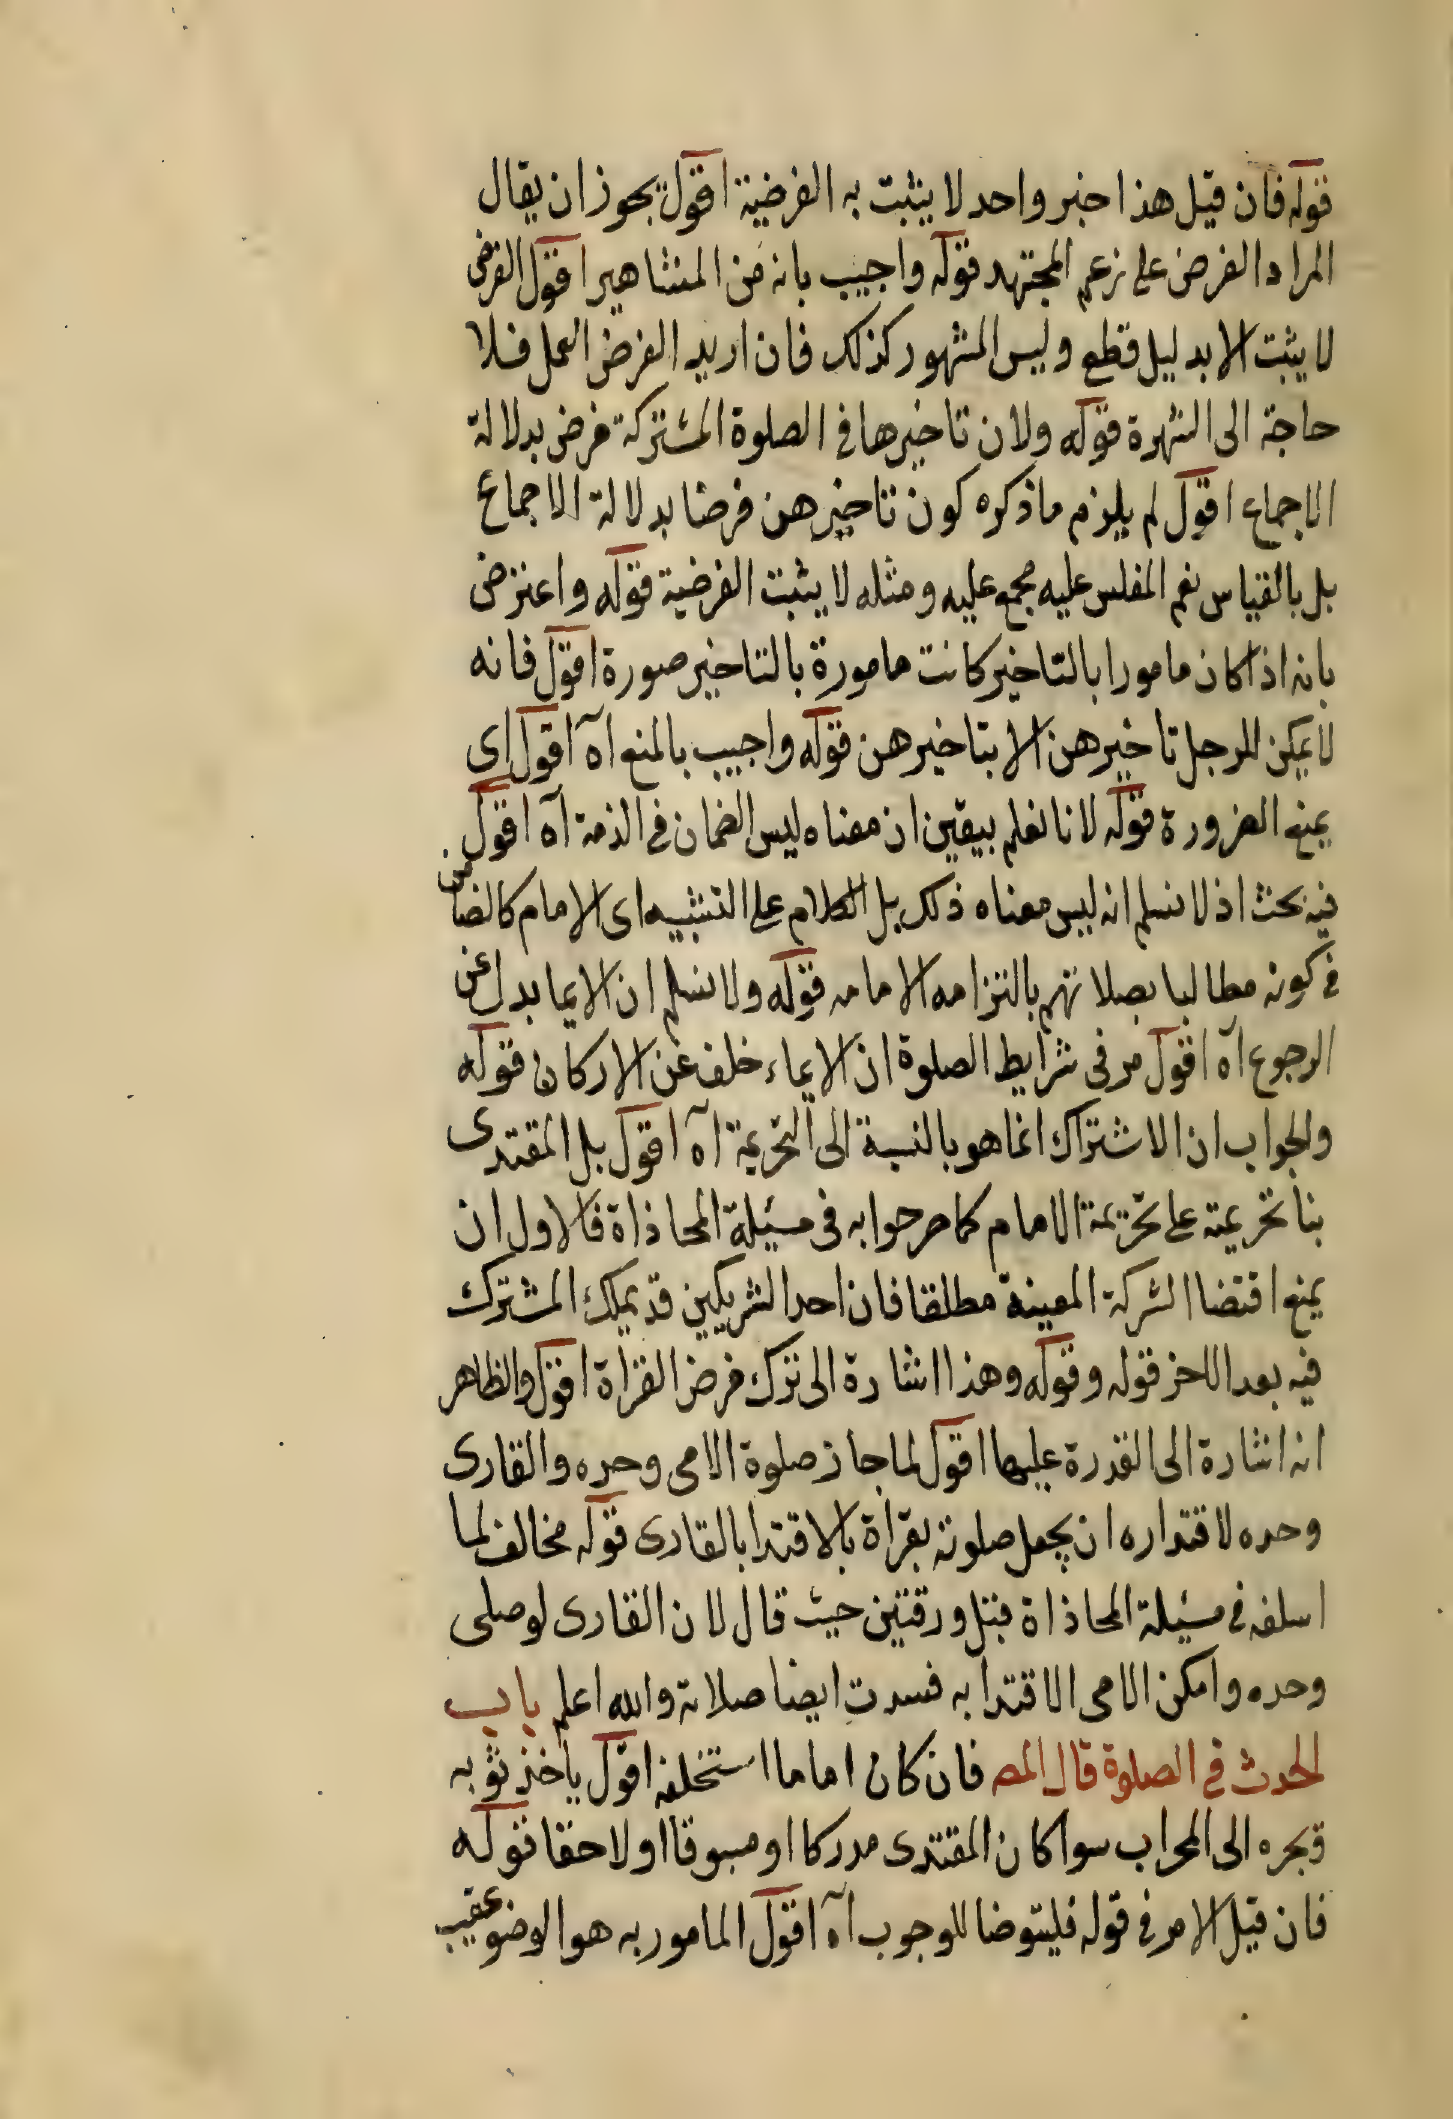 قوله فان قيل هذا خبر واحد لا يثبت به الفرضية اقول يجوز ان يقال
المراد الفرض على زعم المجتهد قوله واجيب بانه من المشاهير اقول الفرض
لا يثبت الا بدليل قطع وليس المشهور كذلك فان اريد الفرض العمل فلا
حاجة الى الشهرة قوله ولان تاخيرها في الصلوة المشتركة فرض بدلالة
الاجماع اقول لم يلزم ماذكره كون تاخيرهن فرضا بدلالة الاجماع
بل بالقياس نعم المفلس عليه مجمع عليه ومثله لا يثبت الفرضية قوله واعترض
بانه اذا كان مامورا بالتاخير كانت مامورة بالتاخير صورة اقول فانه
لا يمكن للرجل تاخيرهن الا بتاخيرهن قوله واجيب بالمنع آه اقول اى
يمنع الضرورة قوله لانا نعلم بيقين ان معناه ليس الضمان في الذمة آه اقول
فيه بحث اذ لا نسلم انه ليس معناه ذلك بل الكلام على التشبيه اى الامام كالضامن
في كونه مطالبا بصلاتهم بالتزامه الامامه قوله ولا نسلم ان الايما بدل عن
الرجوع آه اقول مر فى شرايط الصلوة ان الايماء خلف عن الاركان قوله
والجواب ان الاشتراك انما هو بالنسبة الى التحريمة آه اقول بل المقتدى
بنا تحريمته على تحريمة الامام كما مر جوابه فى مسئلة المحاذاة فالاول ان
يمنع اقتضا الشركة المعينة مطلقا فان احد الشريكين قد يملك المشترك
فيه بعد اللاخر قوله وقوله وهذا اشارة الى ترك فرض القراة اقول والظاهر
انه اشارة الى القدرة عليها اقول لما جاز صلوة الامى وحده والقارى
وحده لاقتداره ان يجعل صلوته بقراة بالاقتدا بالقارى قوله مخالف لما
اسلفه في مسئلة المحاذاة قبل ورقتين حيث قال لان القارى لو صلى
وحده وامكن الامى الاقتدا به فسدت ايضا صلاته والله اعلم باب
الحدث في الصلوة قال المص فان كان اماما استخلف اقول ياخذ ثوبه
ويجره الى المحراب سوا كان المقتدى مدركا او مسبوقا او لاحقا قوله
فان قيل الامر في قوله فليتوضا للوجوب آه اقول المامور به هو الوضو عقيب